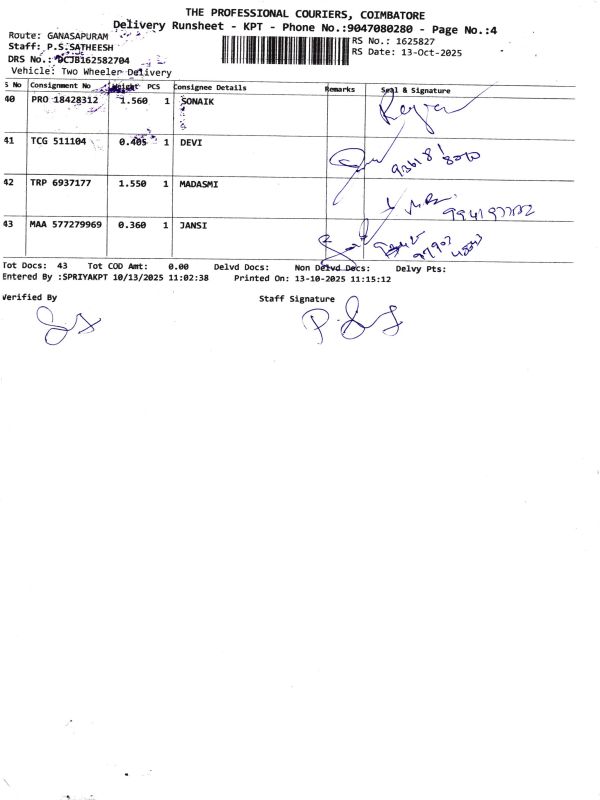 THE PROFESSIONAL COURIERS, COIMBATORE
Delivery Runsheet - KPT - Phone No.:9047080280 - Page No.:4
Route: GANASAPURAM
RS No.: 1625827
Staff: P.S.SATHEESH
RS Date: 13-Oct-2025
DRS No.: DCJB162582704
Vehicle: Two Wheeler Delivery
S No Consignment No Weight PCS Consignee Details Remarks Seal & Signature
40 PRO 18428312 1.560 1 SONAIK
41 TCG 511104 0.405 1 DEVI
42 TRP 6937177 1.550 1 MADASMI
43 MAA 577279969 0.360 1 JANSI
Tot Docs: 43 Tot COD Amt: 0.00 Delvd Docs: Non Delvd Docs: Delvy Pts:
Entered By :SPRIYAKPT 10/13/2025 11:02:38 Printed On: 13-10-2025 11:15:12
Verified By Staff Signature